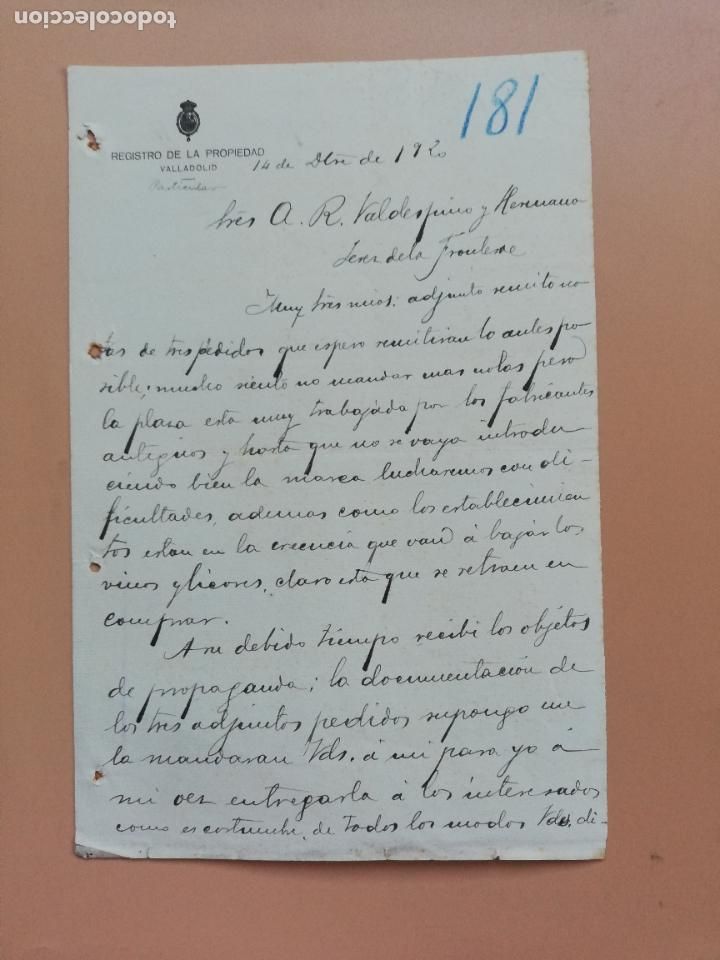 todocoleccion.net
181
REGISTRO DE LA PROPIEDAD
VALLADOLID
Particular
14 de Dbre de 1920
Sres A. R. Valdespino y Hermano
Jerez de la Frontera
Muy Sres mios: adjunto remito no
tas de tres pedidos que espero remitiran lo antes po-
sible; mucho siento no mandar mas notas pero
la plaza esta muy trabajada por los fabricantes
antiguos y hasta que no se vaya introdu
ciendo bien la marca lucharemos con di-
ficultades, ademas como los establecimien
tos estan en la creencia que van á bajar los
vinos y licores, claro esta que se retraen en
comprar.
A su debido tiempo recibi los objetos
de propaganda; la documentación de
los tres adjuntos pedidos supongo me
la mandaran Vds. á mi para yo á
mi vez entregarla á los interesados
como es costumbre, de todos los modos Vds. di-